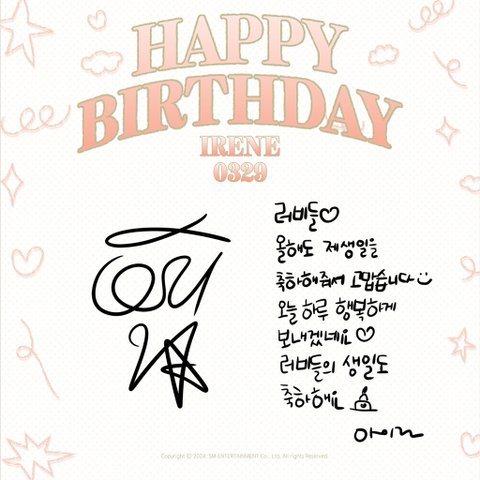 HAPPY
BIRTHDAY
IRENE
0329
러비들♡
올해도 제생일을
축하해줘서 고맙습니다
오늘 하루 행복하게
보내겠네요♡
러비들의 생일도
축하해요
아이린
Copyright ⓒ 2024. SM ENTERTAINMENT Co., Ltd. All rights Reserved.